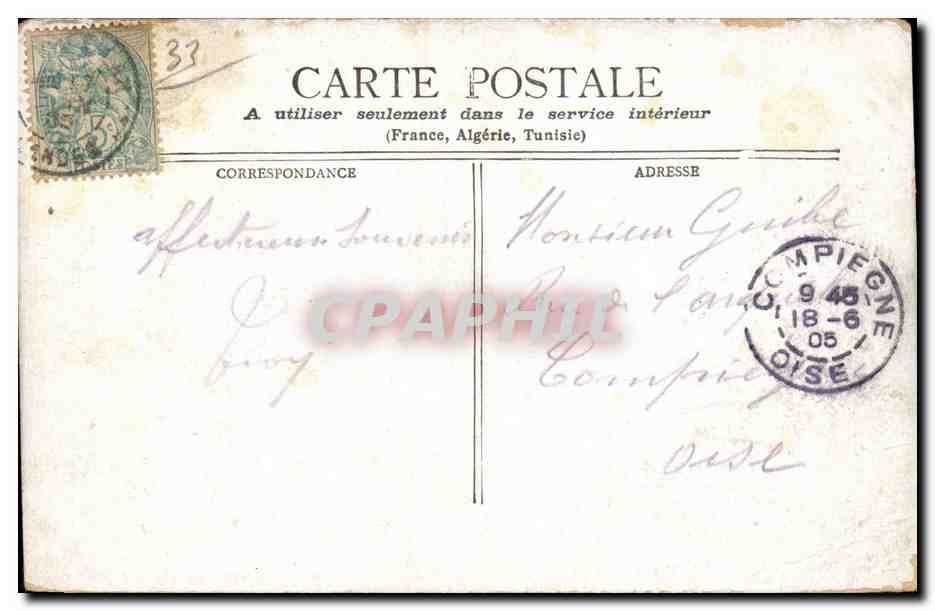 33
CARTE POSTALE
A utiliser seulement dans le service intérieur
(France, Algérie, Tunisie)
CORRESPONDANCE
ADRESSE
affectueux Souvenirs
Monsieur Guibe
Rue de l'
Compiègne
Oise
COMPIEGNE
9 45
18 - 6
05
OISE
CPAPHIL